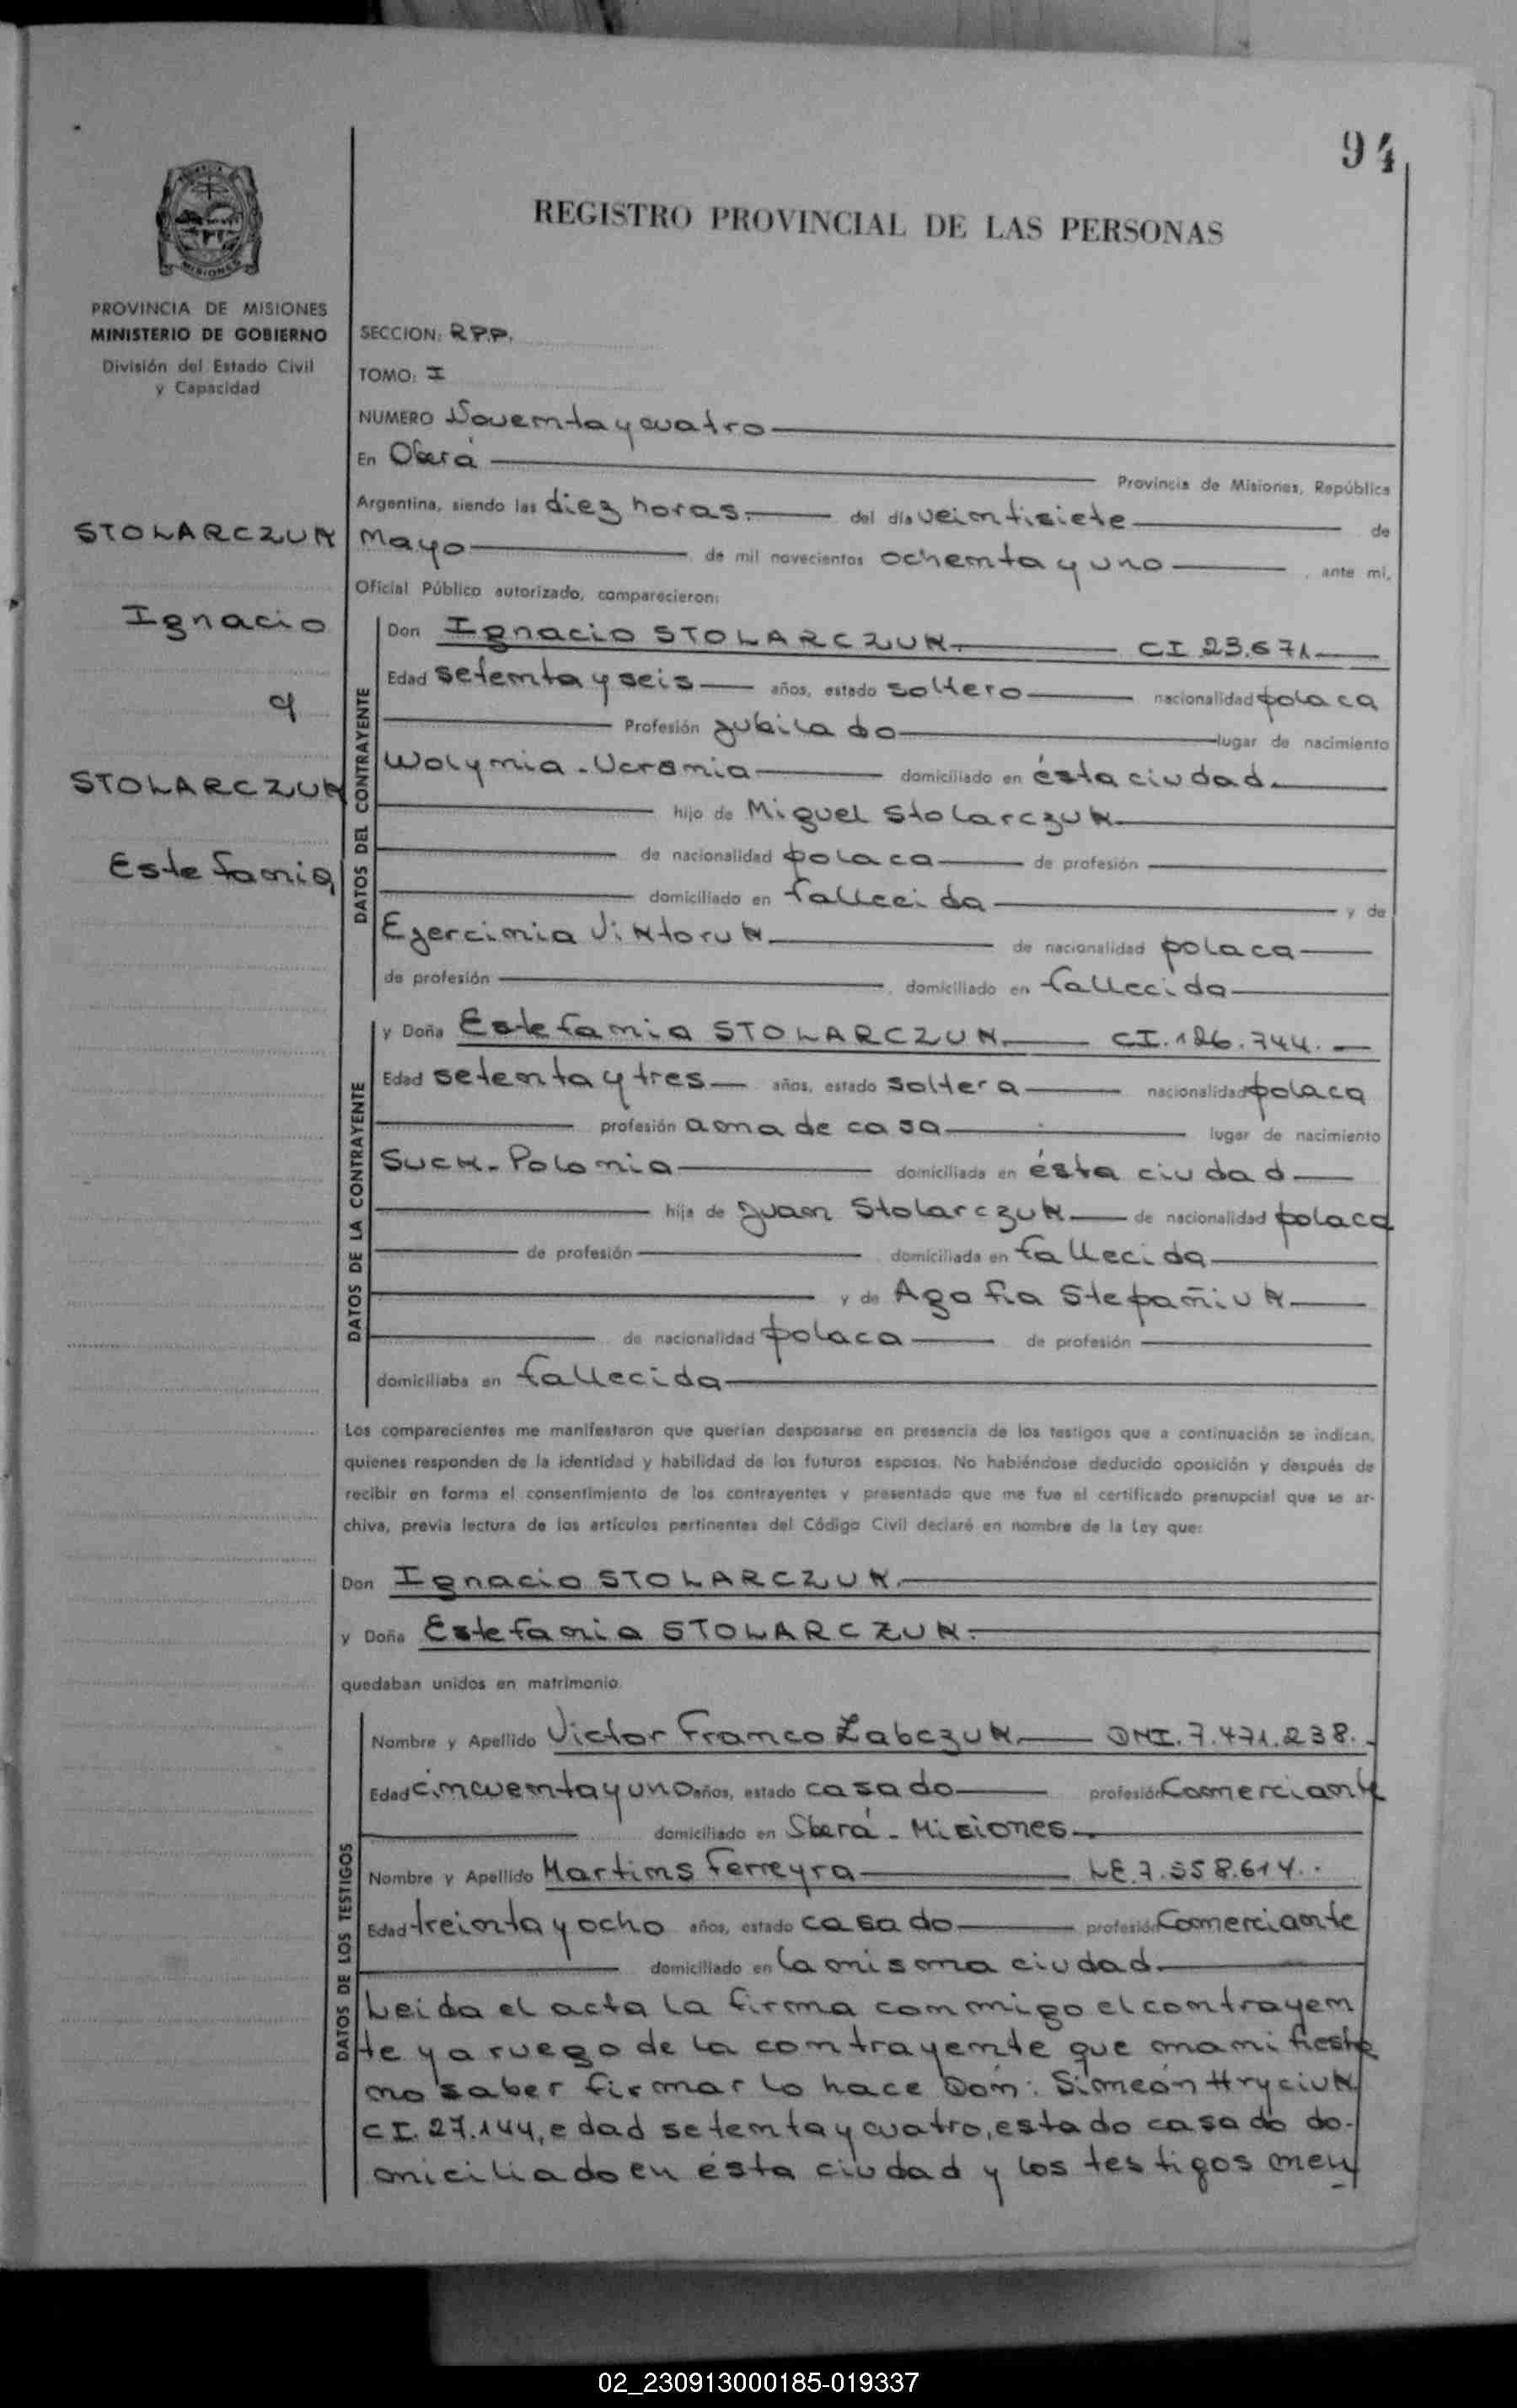 94
REGISTRO PROVINCIAL DE LAS PERSONAS
MISIONES
PROVINCIA DE MISIONES
MINISTERIO DE GOBIERNO
División del Estado Civil
y Capacidad
SECCION: R.P.P.
TOMO: I
NUMERO Noventa y cuatro
En Oberá Provincia de Misiones, República
Argentina, siendo las diez horas. del día veintisiete de
Mayo de mil novecientos ochenta y uno , ante mi,
Oficial Público autorizado, comparecieron:
STOLARCZUK
Ignacio
y
STOLARCZUK
Estefania
DATOS DEL CONTRAYENTE
Don Ignacio STOLARCZUK. CI 23.671
Edad setenta y seis años, estado soltero nacionalidad polaca
Profesión jubilado lugar de nacimiento
Wolynia - Ucrania domiciliado en ésta ciudad.
hijo de Miguel Stolarczuk
de nacionalidad polaca de profesión
domiciliado en fallecida y de
Ejercinia Viktoruk de nacionalidad polaca
de profesión , domiciliado en fallecida
DATOS DE LA CONTRAYENTE
y Doña Estefania STOLARCZUK. CI. 126.744.
Edad setenta y tres años, estado soltera nacionalidad polaca
profesión ama de casa lugar de nacimiento
Suck - Polonia domiciliada en ésta ciudad
hija de Juan Stolarczuk de nacionalidad polaca
de profesión domiciliada en fallecida
y de Agafia Stepañiuk
de nacionalidad polaca de profesión
domiciliaba en fallecida
Los comparecientes me manifestaron que querían desposarse en presencia de los testigos que a continuación se indican,
quienes responden de la identidad y habilidad de los futuros esposos. No habiéndose deducido oposición y después de
recibir en forma el consentimiento de los contrayentes y presentado que me fue el certificado prenupcial que se ar-
chiva, previa lectura de los artículos pertinentes del Código Civil declaré en nombre de la Ley que:
Don Ignacio STOLARCZUK.
y Doña Estefania STOLARCZUK.
quedaban unidos en matrimonio
DATOS DE LOS TESTIGOS
Nombre y Apellido Victor Franco Zabczuk DNI. 7.471.238.
Edad cincuenta y uno años, estado casado profesión Comerciante
domiciliado en Oberá - Misiones.
Nombre y Apellido Martins Ferreyra LE. 7.558.614.
Edad treinta y ocho años, estado casado profesión Comerciante
domiciliado en la misma ciudad.
Leida el acta la firma conmigo el contrayen
te y a ruego de la contrayente que manifiesta
no saber firmar lo hace Don: Simeón Hryciuk
CI. 27.144, edad setenta y cuatro, estado casado do-
miciliado en ésta ciudad y los testigos men
02_230913000185-019337